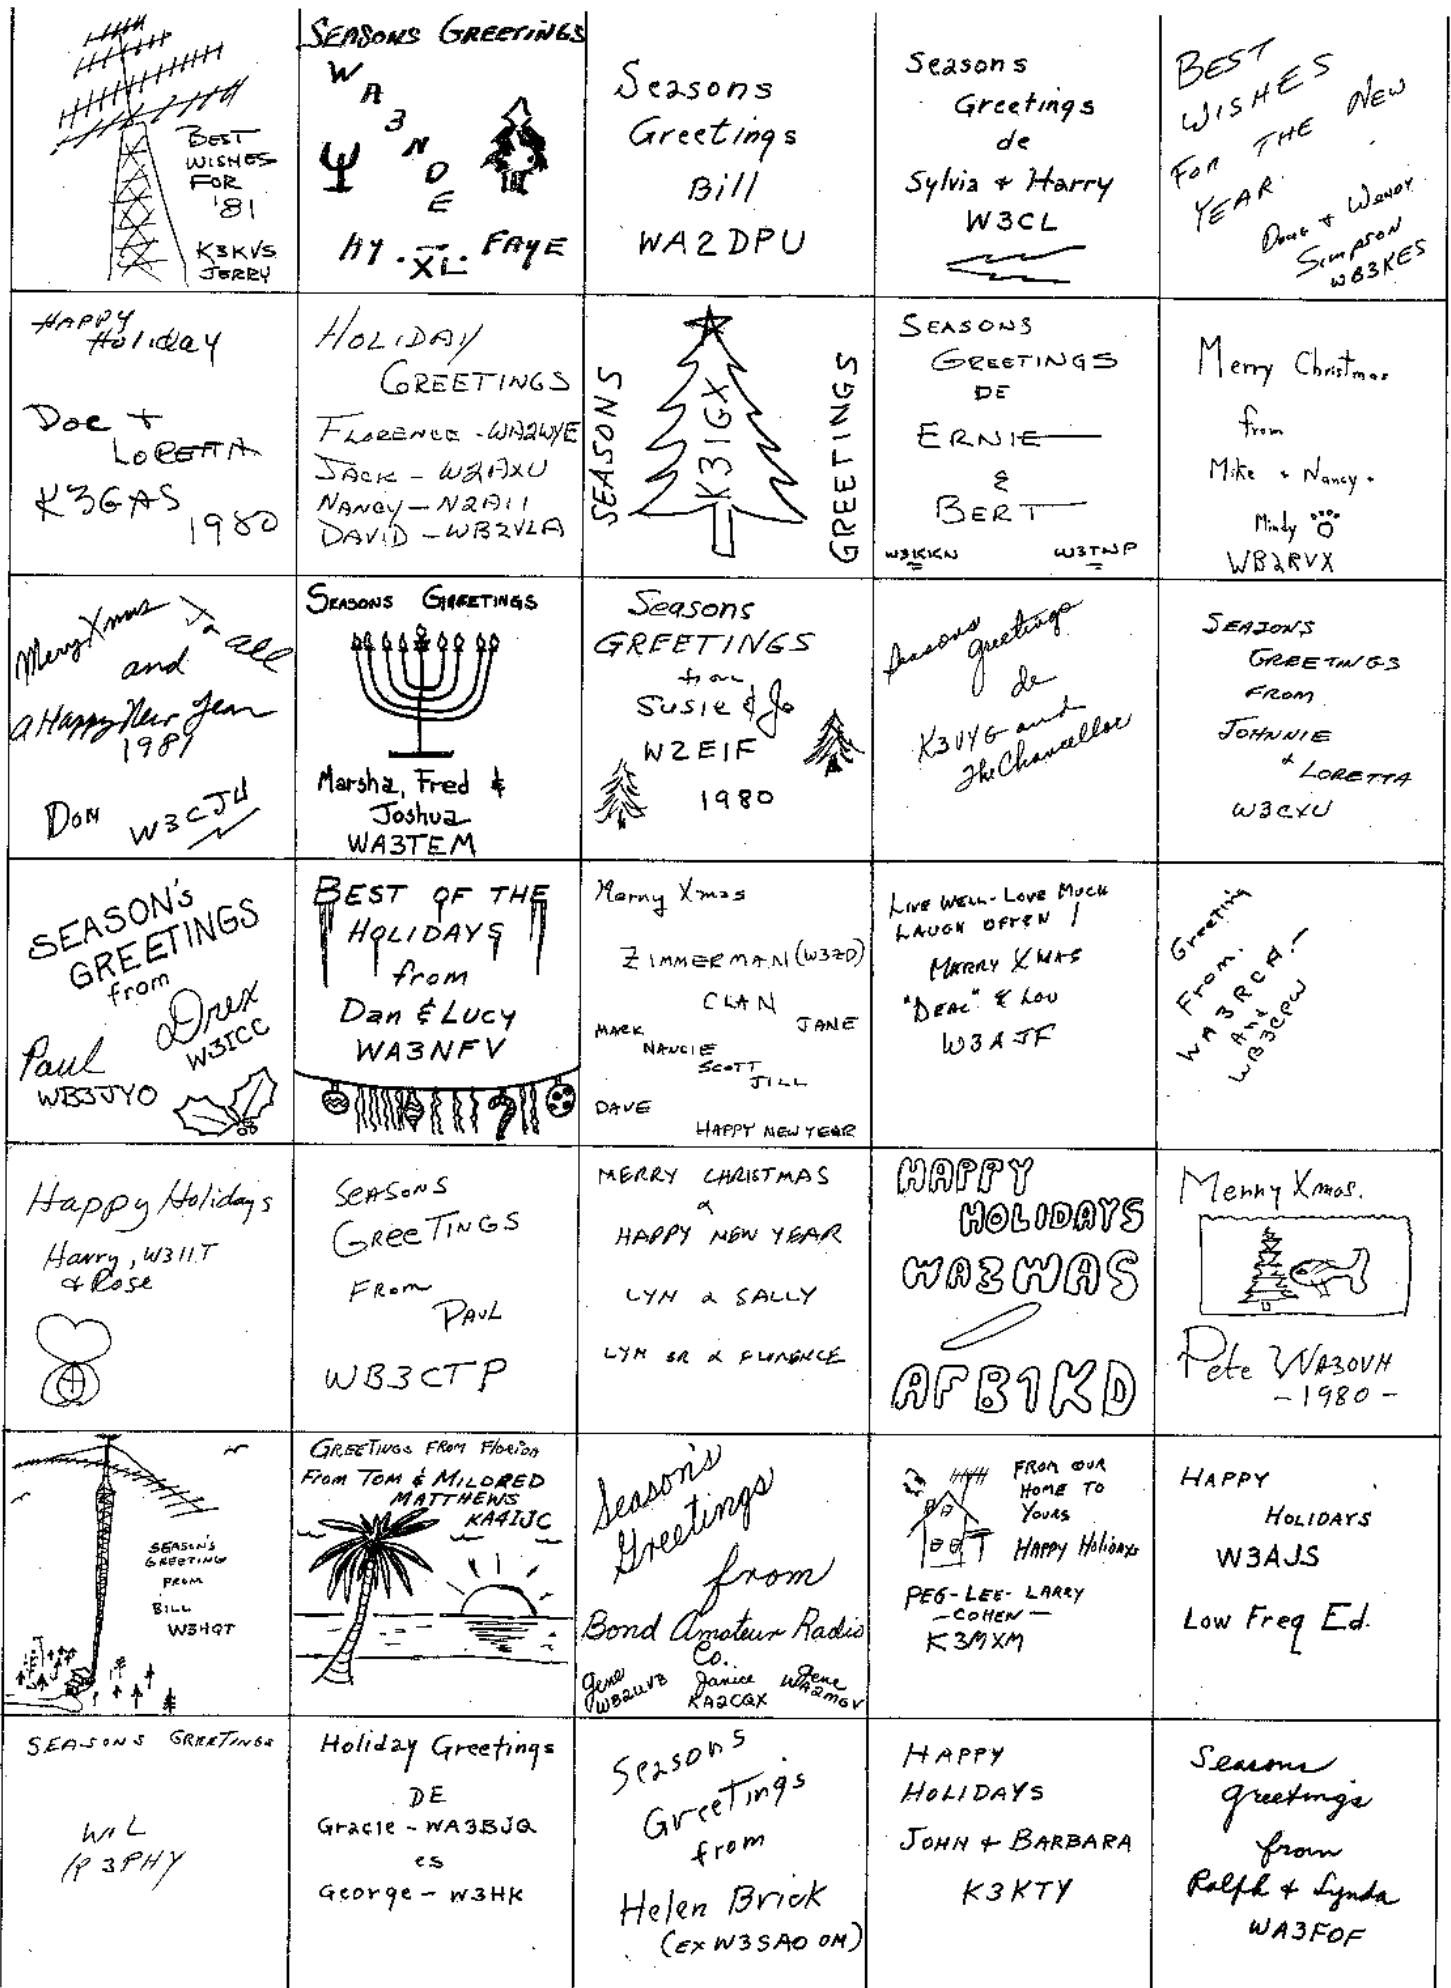 BEST
WISHES
FOR
'81
K3KVS
JERRY
SEASONS GREETINGS
WA3NDE
HY . XL . FAYE
Seasons
Greetings
Bill
WA2DPU
Seasons
Greetings
de
Sylvia + Harry
W3CL
BEST
WISHES
FOR THE NEW
YEAR
Doug + Wendy
Simpson
WB3KES
HAPPY
Holiday
Doc +
LORETTA
K3GAS
1980
HOLIDAY
GREETINGS
FLORENCE - WA2WYE
JACK - W2AXU
NANCY - N2AII
DAVID - WB2VLA
SEASONS
K3IGX
GREETINGS
SEASONS
GREETINGS
DE
ERNIE
&
BERT
W3KKN W3TNP
Merry Christmas
from
Mike + Nancy +
Mindy
WB2RVX
Merry Xmas To all
and
a Happy New Year
1981
DON W3CJU
SEASONS GREETINGS
Marsha, Fred &
Joshua
WA3TEM
Seasons
GREETINGS
from
Susie & Jo
W2EIF
1980
Seasons greetings
de
K3VYG and
The Chancellor
SEASONS
GREETINGS
FROM
JOHNNIE
+ LORETTA
W3CXU
SEASON'S
GREETINGS
from
Drex
W3ICC
Paul
WB3JYO
BEST OF THE
HOLIDAYS
from
Dan & LUCY
WA3NFV
Merry Xmas
ZIMMERMAN (W3ZD)
CLAN
JANE
MARK
NANCIE
SCOTT
JILL
DAVE
HAPPY NEW YEAR
LIVE WELL - LOVE MUCH
LAUGH OFTEN !
MERRY XMAS
"DEAC" & LOU
W3AJF
Greeting
From.
WA3RCA!
And
WB3CPW
Happy Holidays
Harry, W3IIT
& Rose
SEASONS
GREETINGS
FROM
PAUL
WB3CTP
MERRY CHRISTMAS
&
HAPPY NEW YEAR
LYN & SALLY
LYN SR & FLORENCE
HAPPY
HOLIDAYS
WA3WAS
/
AFB1KD
Merry Xmas.
Pete WA3OVH
- 1980 -
SEASON'S
GREETING
FROM
BILL
W3HQT
GREETINGS FROM Florida
From TOM & MILDRED
MATTHEWS
KA4IJC
Season's
Greetings
from
Bond Amateur Radio
Co.
Gene Janice Gene
WB2UVB KA2CGX WA2MGV
FROM OUR
HOME TO
YOURS
HAPPY HOLIDAYS
PEG - LEE - LARRY
- COHEN -
K3MXM
HAPPY
HOLIDAYS
W3AJS
Low Freq Ed.
SEASONS GREETINGS
WIL
3PHY
Holiday Greetings
DE
Gracie - WA3BJQ
es
George - W3HK
Seasons
Greetings
from
Helen Brick
(EX W3SAO OM)
HAPPY
HOLIDAYS
JOHN + BARBARA
K3KTY
Seasons
greetings
from
Ralph + Lynda
WA3FOF